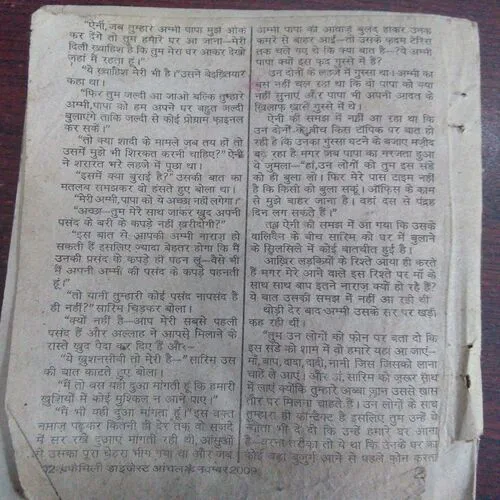 "ऐनी, जब तुम्हारे अम्मी पापा मुझे ओके
कर देंगे तो तुम हमारे घर आ जाना—मेरी
दिली ख्वाहिश है कि तुम मेरा घर आकर देखो
जहां मैं रहता हूं।"
"ये ख्वाहिश मेरी भी है।" उसने बेइख्तियार
कहा था।
"फिर तुम जल्दी आ जाओ बल्कि तुम्हारे
अम्मी, पापा को हम अपने घर बहुत जल्दी
बुलाएंगे ताकि जल्दी से कोई प्रोग्राम फाइनल
कर सकें।"
"तो क्या शादी के मामले जब तय हों तो
उसमें मुझे भी शिरकत करनी चाहिए?" ऐनी
ने शरारत भरे लहजे में पूछा था।
"इसमें क्या बुराई है?" उसकी बात का
मतलब समझकर वो हंसते हुए बोला था।
"मेरी अम्मी, पापा को ये अच्छा नहीं लगेगा।"
"अच्छा—तुम मेरे साथ जाकर खुद अपनी
पसंद के बरी के कपड़े नहीं खरीदोगी?"
"इस बात से आपकी अम्मी नाराज़ हो
सकती हैं इसलिए ज्यादा बेहतर होगा कि मैं
उनकी पसंद के कपड़े ही पहन लूं—वैसे भी
मैं अपनी अम्मी की पसंद के कपड़े पहनती
हूं।"
"तो यानी तुम्हारी कोई पसंद नापसंद है
ही नहीं?" सारिम चिड़कर बोला।
"क्यों नहीं है—आप मेरी सबसे पहली
पसंद हैं और अल्लाह ने आपसे मिलाने के
रास्ते खुद पैदा कर दिए हैं और—
"ये खुशनसीबी तो मेरी है—" सारिम उस
की बात काटते हुए बोला।
"मैं तो बस यही दुआ मांगती हूं कि हमारी
खुशियों में कोई मुश्किल न आने पाए।"
"मैं भी यही दुआ मांगता हूं।" इस वक्त
नमाज़ पढ़कर कितनी ही देर तक वो सजदे
में सर रखे दुआएं मांगती रही थी, आंसुओं
से उसका पूरा चेहरा भीग गया था और जब
92 फैमिली डाइजेस्ट आंचल नवम्बर 2009
अम्मी पापा की आवाज़ें बुलंद होकर उनके
कमरे से बाहर आईं—तो उसके कदम टेरिस
तक चले गए थे कि क्या बात है—ये अम्मी
पापा क्यों इस कद्र गुस्से में हैं?
उन दोनों के लहजे में गुस्सा था। अम्मी का
बस नहीं चल रहा था कि वो पापा को क्या
नहीं सुनाएं और पापा भी अपनी आदत के
खिलाफ खासे गुस्से में थे।
ऐनी की समझ में नहीं आ रहा था कि
उन दोनों के बीच किस टॉपिक पर बात हो
रही है कि उनका गुस्सा घटने के बजाए मज़ीद
बढ़ रहा है मगर जब पापा का गरजता हुआ
ये जुमला—"हां, उन लोगों को तुम इस संडे
को ही बुला लो। फिर मेरे पास टाइम नहीं
है कि किसी को बुला सकूं। ऑफिस के काम
से मुझे बाहर जाना है। वहां दस से पंद्रह
दिन लग सकते हैं।"
तब ऐनी की समझ में आ गया कि उसके
वालिदैन के बीच सारिम को घर में बुलाने
के सिलसिले में कोई बातचीत हुई है।
आखिर लड़कियों के रिश्ते आया ही करते
हैं मगर मेरे आने वाले इस रिश्ते पर मां के
साथ साथ बाप इतने नाराज़ क्यों हो रहे हैं?
ये बात उसकी समझ में नहीं आ रही थी
थोड़ी देर बाद अम्मी उसके सर पर खड़ी
कह रही थीं।
"तुम उन लोगों को फोन पर बता दो कि
इस संडे को शाम में वो हमारे यहां आ जाएं—
मां, बाप, दादा, दादी, नानी जिस जिसको लाना
चाहे ले आएं। और हां, सारिम को ज़रूर साथ
में लाएं क्योंकि तुम्हारे अब्बा जान उससे खास
तौर पर मिलना चाहते हैं। उन लोगों के साथ
तुम्हारा ही कॉन्टेक्ट है इसलिए तुम उन्हें ये
भी दे दो कि उन्हें हमारे घर आना
है—वरना तरीका तो ये था कि उनके घर का
कोई बड़ा बुज़ुर्ग आने से पहले फोन करता